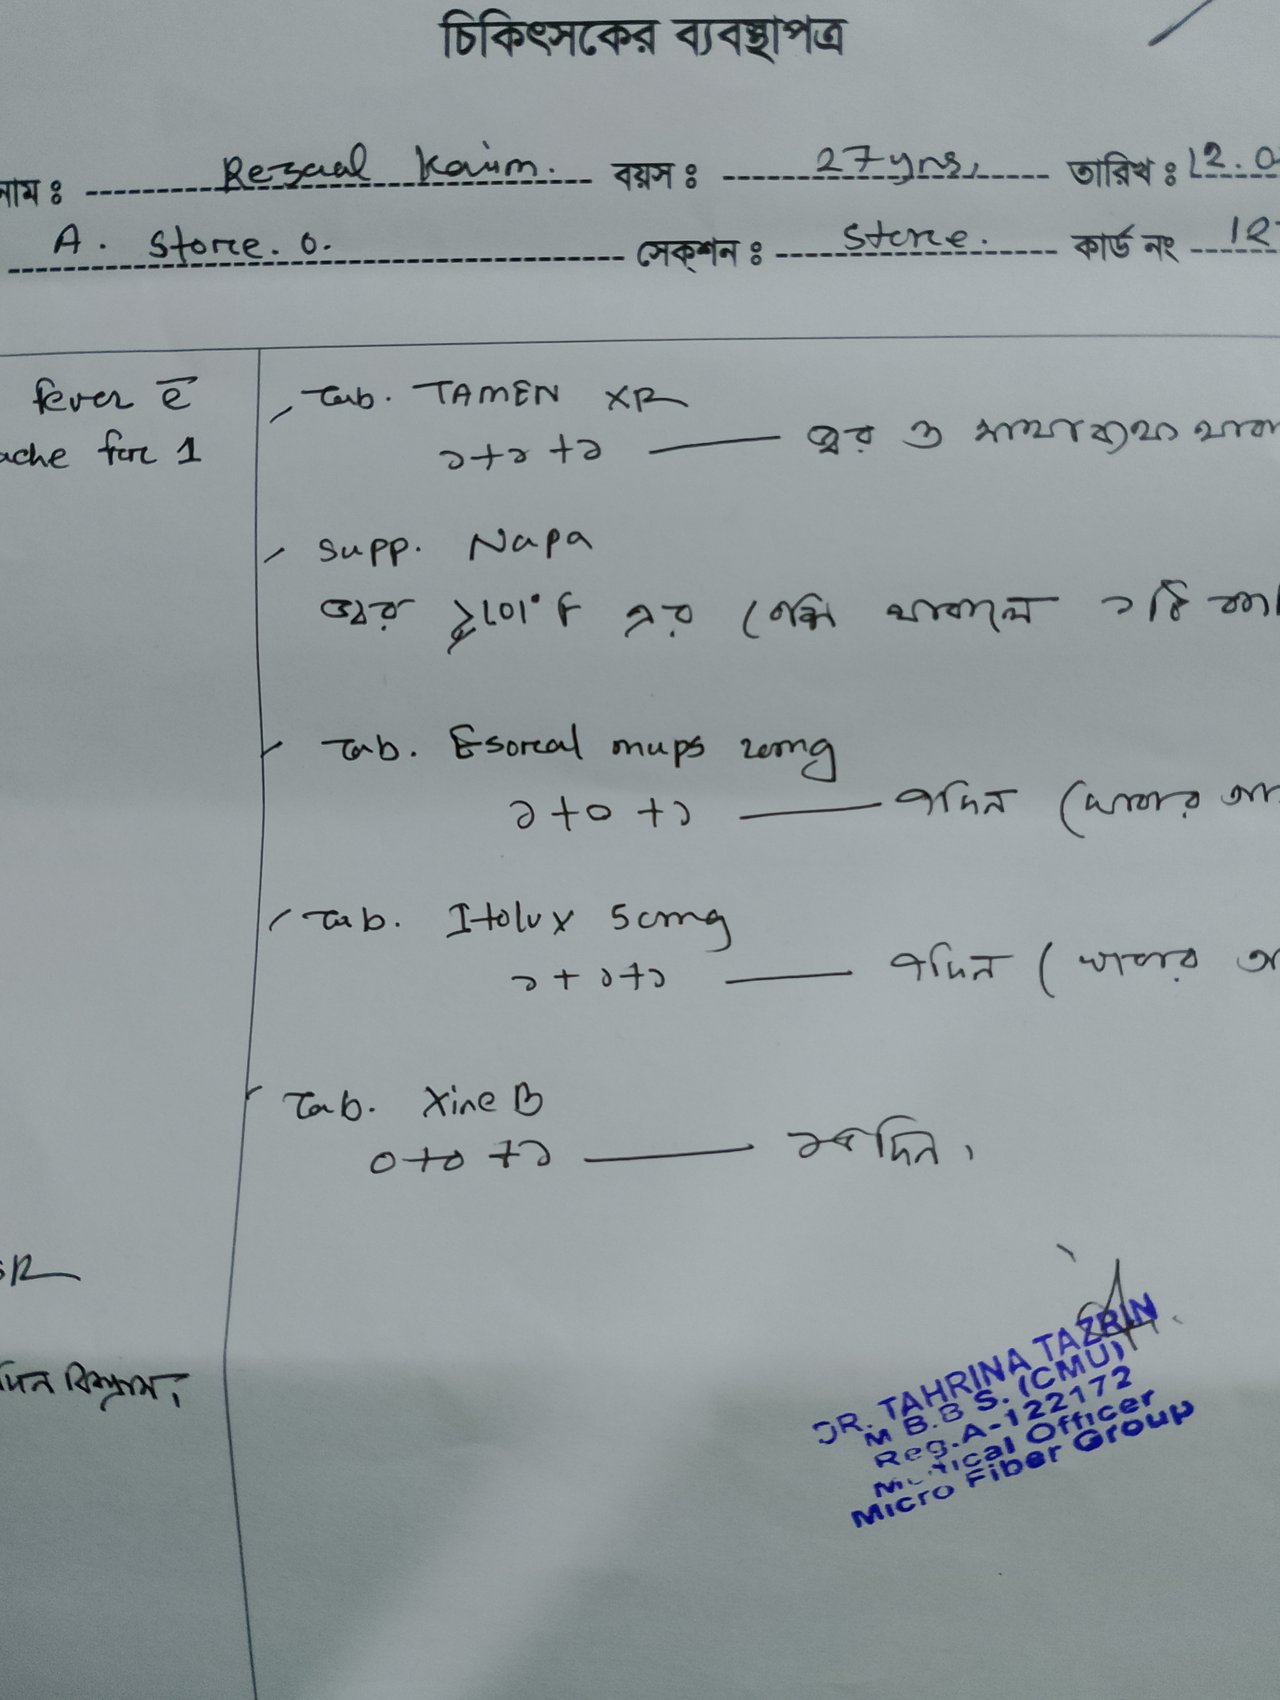 চিকিৎসকের ব্যবস্থাপত্র
নাম ঃ Rezaul Karim. বয়স ঃ 27 yrs, তারিখ ঃ 12.0
A. Store. o. সেক্শন ঃ Store. কার্ড নং 12
fever c̄
ache for 1
Tab. TAMEN XR
১+১+১ — জ্বর ও মাথাব্যথা থাক
Supp. Napa
জ্বর ≥101°F এর বেশি থাকলে ১টি
Tab. Esoral mups 20mg
১+০+১ — ৭দিন (খাবার আ
Tab. Itolux 50mg
১+১+১ — ৭দিন (খাবার আ
Tab. Xine B
০+০+১ — দিন।
দিন বিশ্রাম।
DR. TAHRINA TAZRIN
M B.B S. (CMU)
Reg.A-122172
Medical Officer
Micro Fiber Group